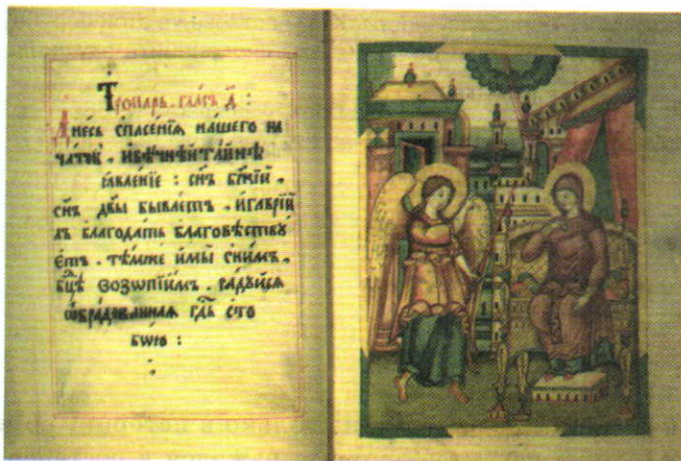 Тропарь. гласъ д҃ :
Днесь спасенїѧ нашего на
чатокъ. и вѣчнѣй тайнѣ
ꙗвленїе : сн҃ъ бж҃їй.
сн҃ъ дв҃ы бываетъ. и гаврїи
лъ благодать благовѣствꙋ
етъ. тѣмже и мы сни́мъ.
бц҃е возопїимъ. радꙋйсѧ
ѡбрадованнаѧ гд҃ь с то
бѡю :